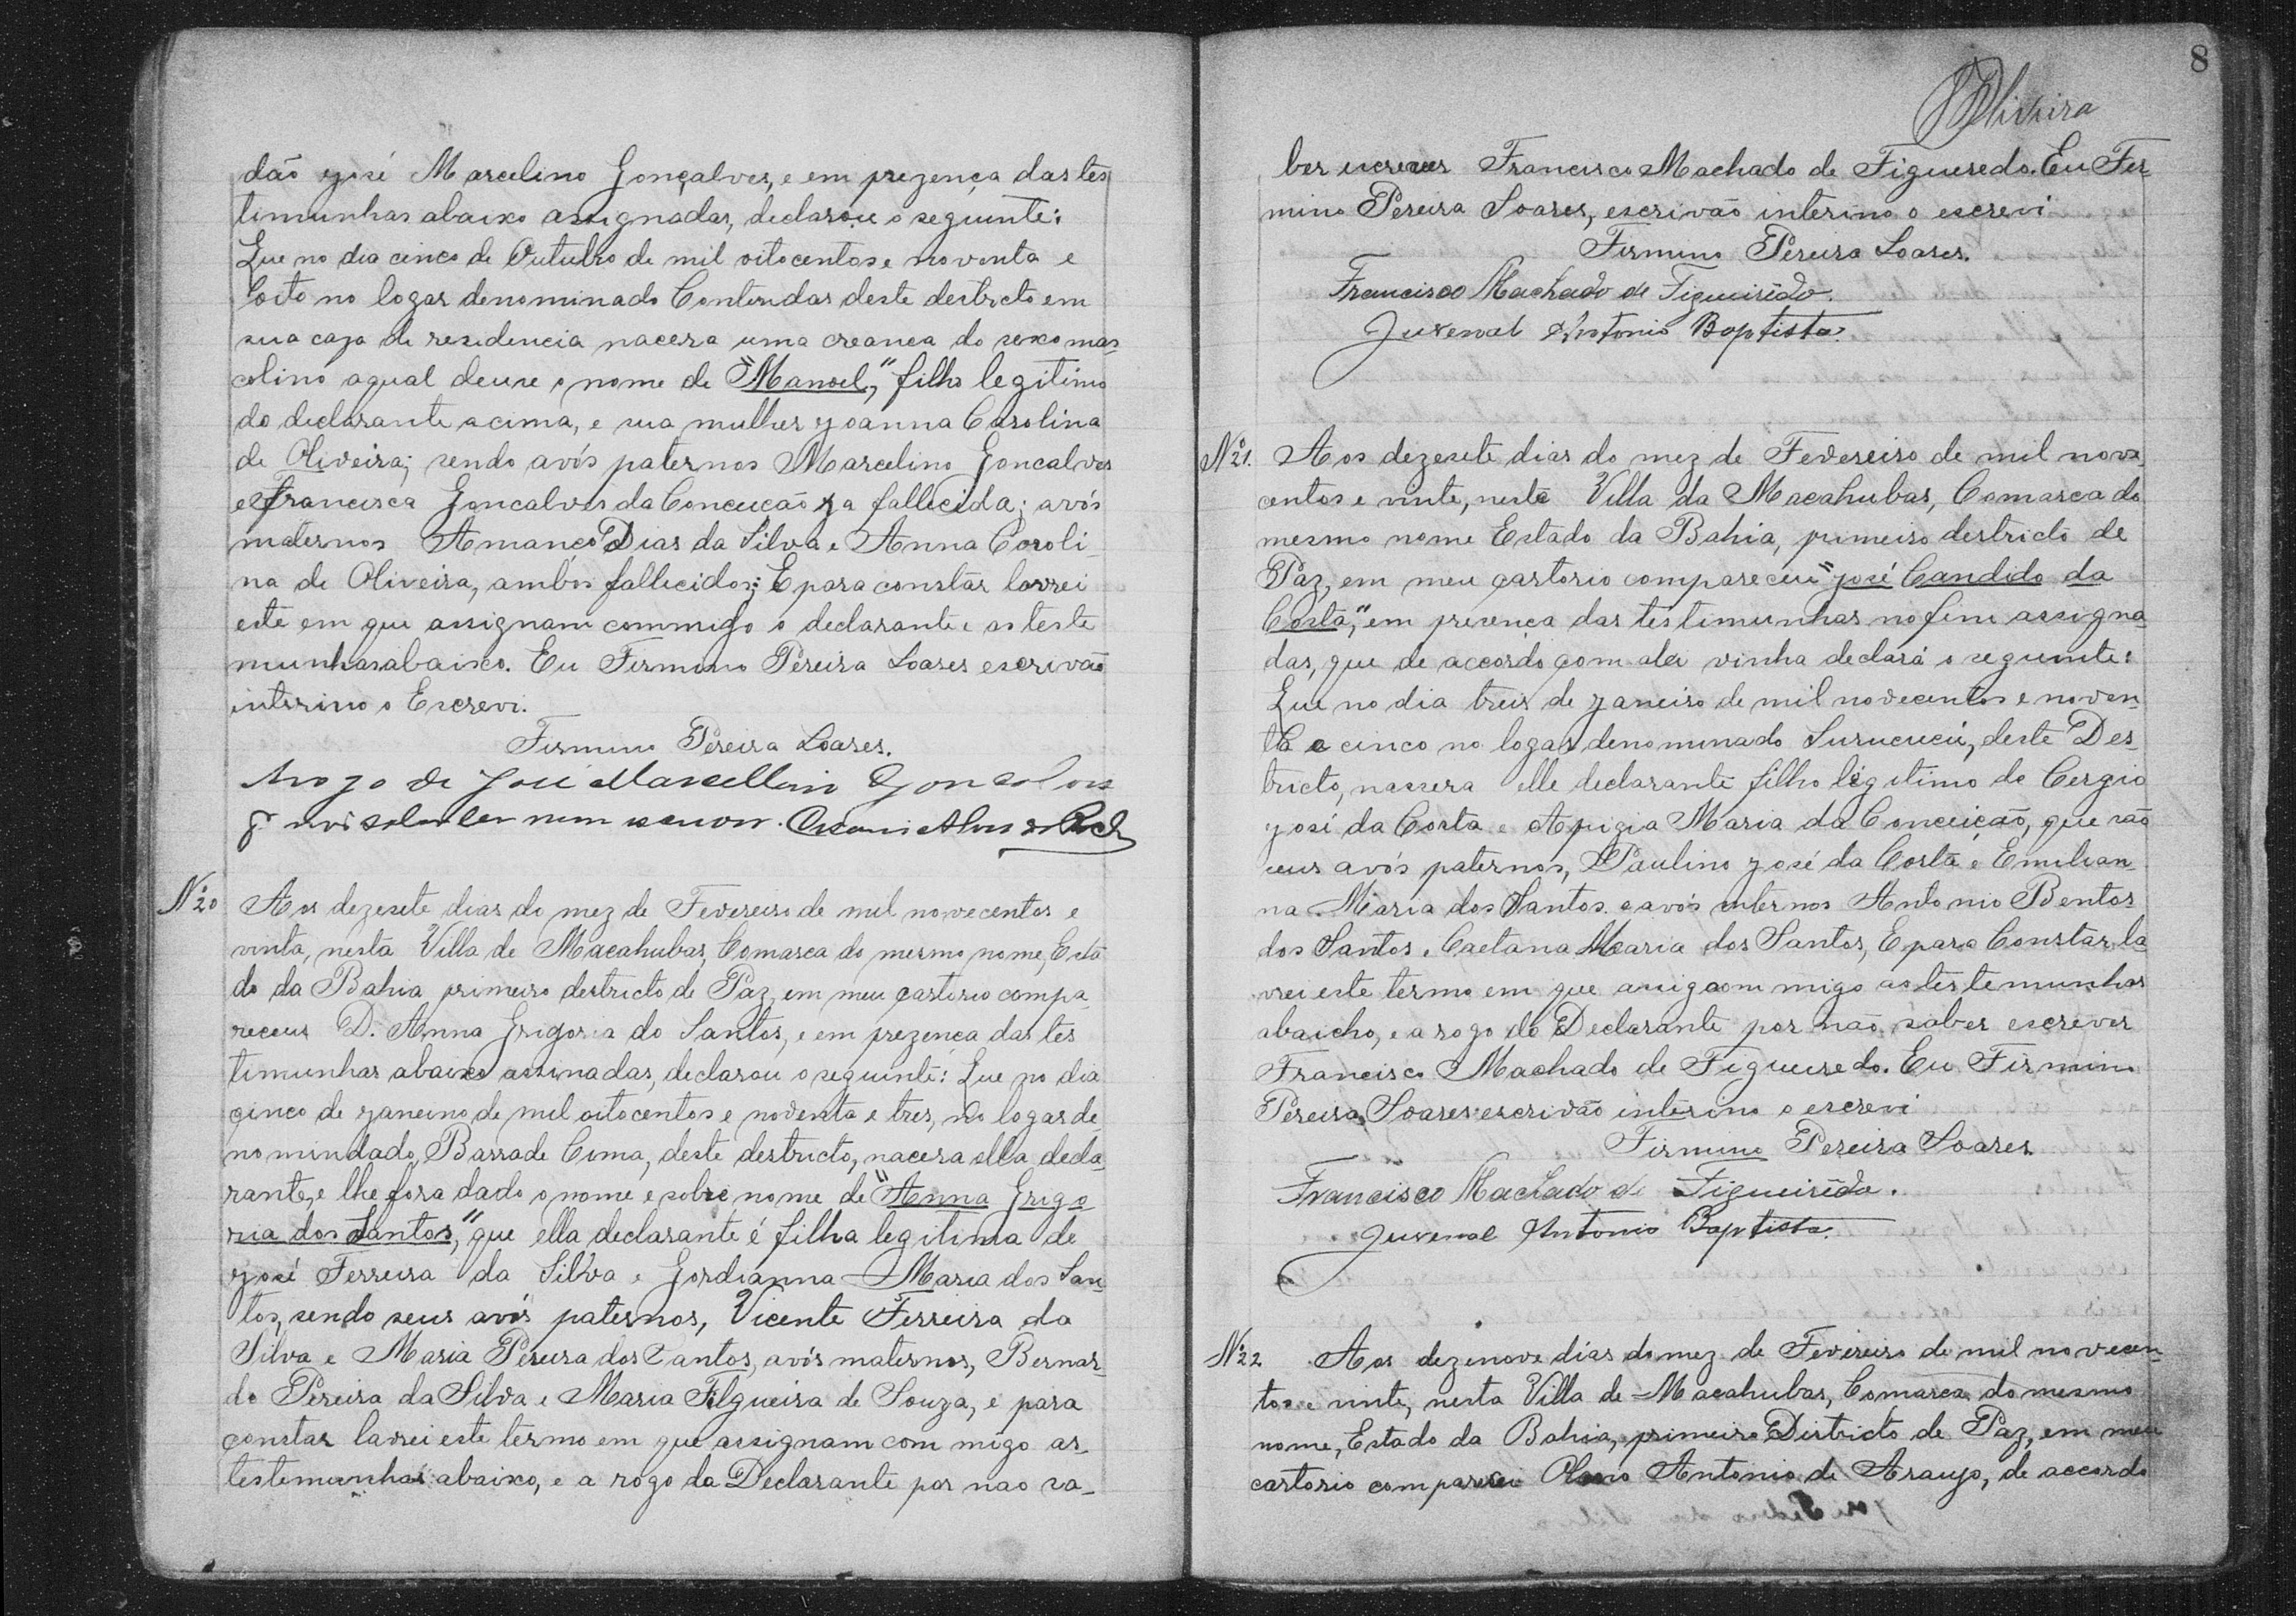 dão José Marcelino Gonçalves, e em prezença das tes
timunhas abaixo assignadas, declarou o seguinte:
Que no dia cinco de Outubro de mil oitocentos e noventa e
oito no logar denominado Contendas deste destricto em
sua caza de residencia nacera uma creanca do sexo mas
colino aqual deuse o nome de "Manoel," filho legitimo
do declarante acima, e sua mulher Joanna Carolina
de Oliveira; sendo avós paternos Marcelino Goncalves
e Francisca Goncalves da Conceição ja fallecida; avós
maternos Amanco Dias da Silva e Anna Coroli
na de Oliveira, ambos fallecidos; E para constar lavrei
este em que assignam commigo o declarante e as teste
munhas abaixo. Eu Firmino Pereira Soares escrivão
interino o Escrevi.
Firmino Pereira Soares.
Arogo de José Marcellino Gonsalves
ler nem
Nº 20 Aos dezesete dias do mez de Fevereiro de mil novecentos e
vinta, nesta Villa de Macahubas, Comarca do mesmo nome, Esta
do da Bahia primeiro destricto de Paz, em meu cartorio compa
receus D. Anna Grigoria do Santos, e em prezença das tes
timunhas abaixo assinadas, declarou o seguinte: Que no dia
cinco de janeino de mil oitocentos e noventa e tres, no logar de
nomindado, Barra de Cima, deste destricto, nacera ella decla
rante, e lhe fora dado o nome e sobre nome de "Anna Grigo
ria dos Santos," que ella declarante é filha legitima de
José Ferreira da Silva e Gordianna Maria dos San
tos, sendo seus avós paternos, Vicente Ferreira da
Silva e Maria Pereira dos Santos, avós maternos, Bernar
do Pereira da Silva e Maria Filgueira de Souza, e para
constar lavrei este termo em que assignam com migo as
testemunhas abaixo, e a rogo da Declarante por nao sa-
8
Oliveira
ber escrever Francisco Machado de Figueredo. Eu Fir
mino Pereira Soares, escrivão interino o escrevi
Firmino Pereira Soares.
Francisco Machado de Figueirêdo.
Juvenal Antonio Baptista.
Nº 21. Aos dezesete dias do mez de Fevereiro de mil nove
centos e vinte, nesta Villa da Macahubas, Comarca do
mesmo nome Estado da Bahia, primeiro destricto de
Paz, em meu cartorio compareceu "José Candido da
Costa," em presença das testimunhas no fim assigna
das, que de accordo com a lei vinha declará o seguinte:
Que no dia treis de janeiro de mil novecentos e noven-
ta e cinco no logar denominado Surucucú, deste Des
tricto, nassera elle declarante filho legitimo de Cergio
José da Costa e Apigia Maria da Conceição, que são
seus avós paternos, Paulino José da Costa e Emilian
na Maria dos Santos e avós maternos Antonio Bentos
dos Santos e Caetana Maria dos Santos, E para Constar la
vrei este termo em que assig com migo as testemunhas
abaicho, e a rogo do Declarante por não saber escrever
Francisco Machado de Figueiredo. Eu Firmino
Pereira Soares escrivão interino o escrevi
Firmino Pereira Soares
Francisco Machado de Figueirêdo.
Juvenal Antonio Baptista.
Nº 22 Aos dezenove dias do mez de Fevireiro de mil novecen-
tos e vinte, nesta Villa de Macahubas, Comarca do mesmo
nome, Estado da Bahia, primeiro Districto de Paz, em meu
cartorio Antonio de Araujo, de accordo